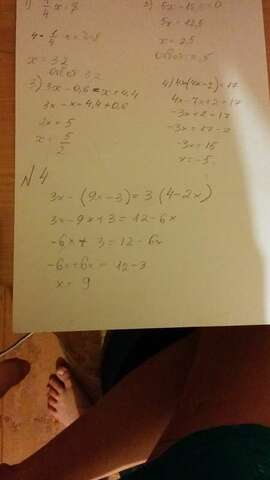 1) 1/4 x = 8
4 · 1/4 x = 4·8
x = 32
ответ 32
2) 5x - 12,5 = 0
5x = 12,5
x = 2,5
ответ 2,5
3) 3x - 0,6 = x + 4,4
3x - x = 4,4 + 0,6
2x = 5
x = 5/2
4x - 7x + 2 = 17
-3x + 2 = 17
-3x = 17 - 2
-3x = 15
x = -5
N 4
3x - (9x - 3) = 3 (4 - 2x)
3x - 9x + 3 = 12 - 6x
-6x + 3 = 12 - 6x
-6x + 6x = 12 - 3
x = 9